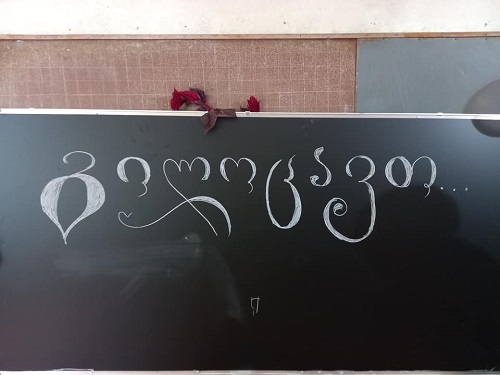 გილოცავთ...